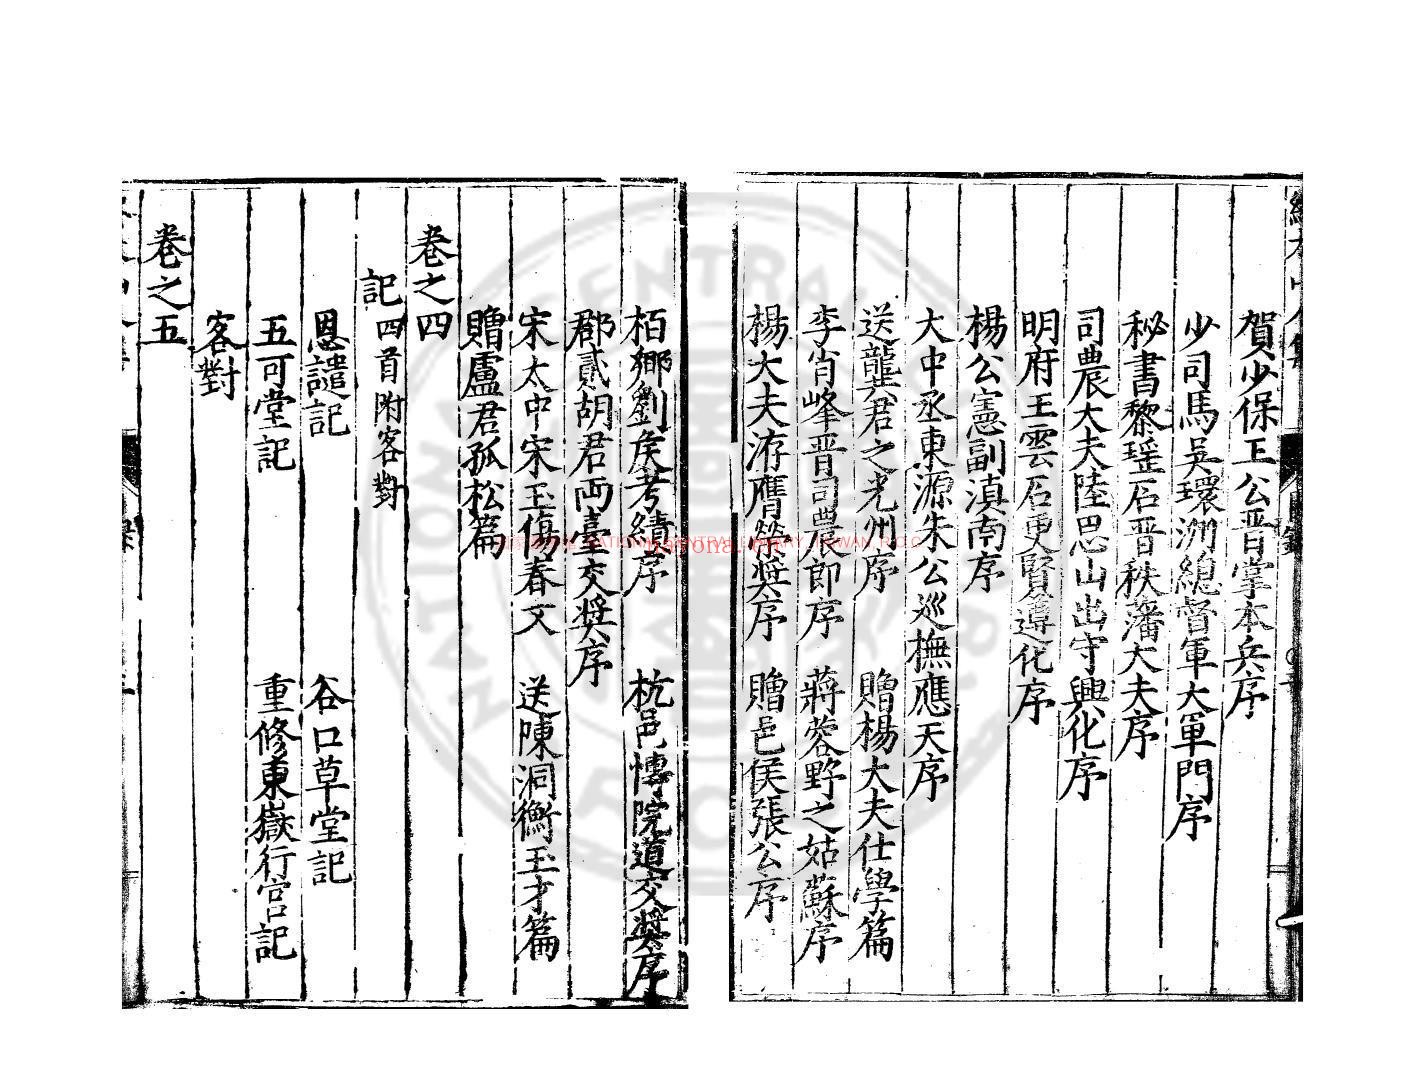 賀少保王公晋掌本兵序
少司馬吳環洲總督軍大軍門序
秘書黎瑶石晋秩藩大夫序
司農大夫陸思山出守興化序
明府王雲石更賢遵化序
楊公憲副滇南序
大中丞東源朱公巡撫應天序
送龔君之光州序 贈楊大夫仕學篇
李肖峰晋司農郎序 蔣蓉野之姑蘇序
楊大夫洊膺榮奬序 贈邑侯張公序
栢鄉劉矦考績序 杭邑博院道交奬序
郡貳胡君両臺交奬序
宋太中宋玉傷春文 送陳洞衡玉才篇
贈盧君孤松篇
卷之四
記四首附客對
恩譴記 谷口草堂記
五可堂記 重修東嶽行宫記
客對
卷之五